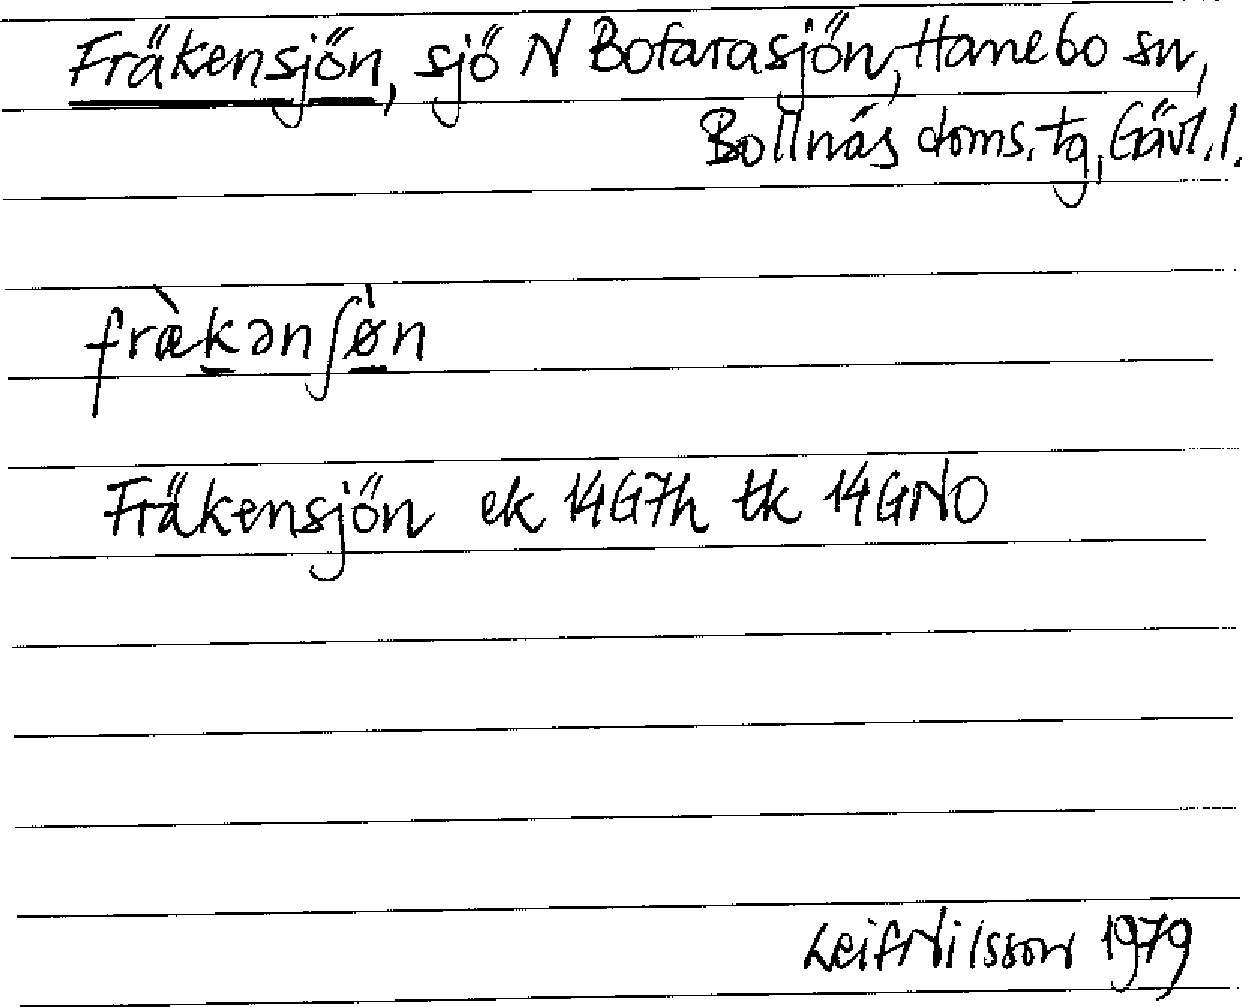 Fräkensjön, sjö N Bofarasjön, Hanebo sn,
Bollnäs doms. tg, Gävl. l.
fræ̀kənʃø̀n
Fräkensjön ek 14G7h tk 14GNO
Leif Nilsson 1979